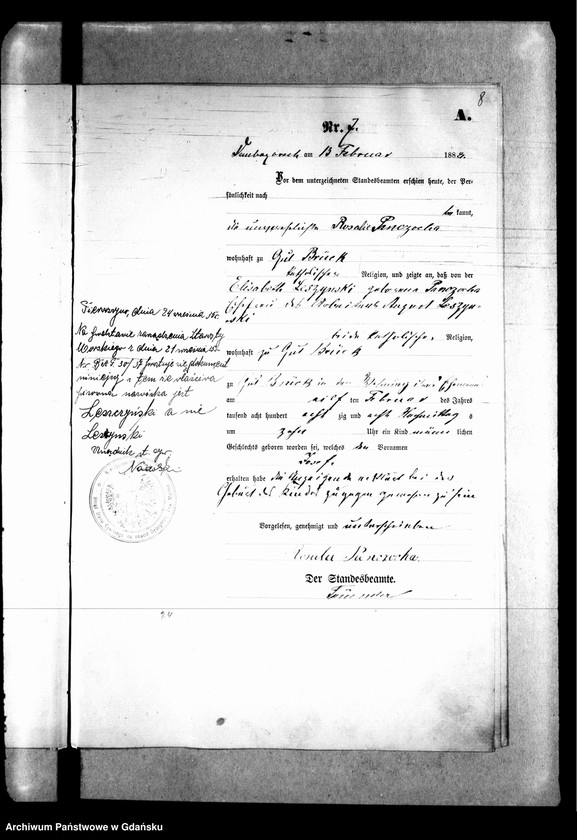 8
A.
Nr. 7.
am 13 Februar 188
Vor dem unterzeichneten Standesbeamten erschien heute, der Per-
sönlichkeit nach
kannt,
die unverehelichte Rosalie Penczocha
wohnhaft zu Gut Brück
katholischer Religion, und zeigte an, daß von der
Elisabeth Leszynski geborenen Penczocha
Ehefrau des Arbeiters August Leszyn-
ski
beide katholischer Religion,
wohnhaft zu Gut Brück
zu Gut Brück in der Wohnung ihres Ehemannes
am elf ten Februar des Jahres
tausend acht hundert acht zig und acht Nachmittag s
um zehn Uhr ein Kind männ lichen
Geschlechts geboren worden sei, welches den Vornamen
Josef
erhalten habe die Anzeigende erklärt bei der
Geburt des Kindes zugegen gewesen zu sein
Vorgelesen, genehmigt und unterschrieben
Rosalie Penczocha.
Der Standesbeamte.
Pierwoszyno, dnia 24 września
Na podstawie zarządzenia Starosty
Morskiego z dnia 21 września
prostuje się dokument
niniejszy o tem że właściwe
nazwiska jest
Leszczyński a nie
Leszynski
Urzędnik st. cyw.
24
Archiwum Państwowe w Gdańsku